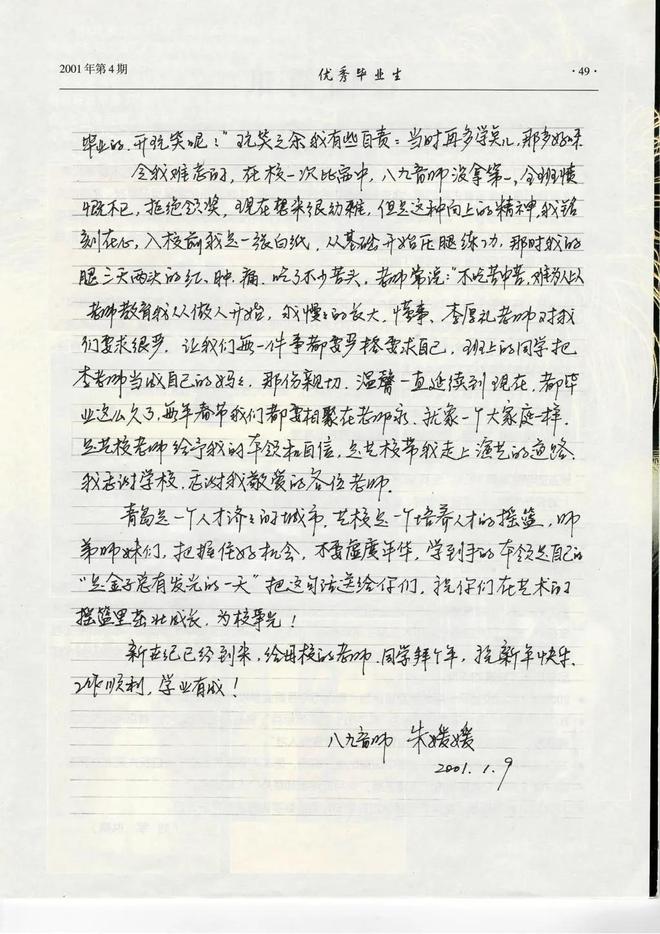 2001年第4期
优秀毕业生
·49·
毕业的.开玩笑呢?"玩笑之余我有些自责:当时再多学点儿,那多好呀
令我难忘的,在校一次比赛中,八九音师没拿第一,全班愤
慨不已,拒绝领奖,现在想来很幼稚,但是这种向上的精神,我铭
刻在心,入校前我是一张白纸,从基础开始压腿练功,那时我的
腿三天两次的红、肿、痛.吃了不少苦头,老师常说:"不吃苦中苦,难为人上人
老师教育我从做人开始,我慢慢的长大.懂事、李厚礼老师对我
们要求很严.让我们每一件事都要严格要求自己,班上的同学把
李老师当成自己的妈妈,那份亲切.温馨一直延续到现在,都毕
业这么久了,每年春节我们都要相聚在老师家.就象一个大家庭一样.
是艺校老师给予我的本领和自信,是艺校带我走上演艺的道路
我感谢学校.感谢我敬爱的各位老师.
青岛是一个人才济济的城市.艺校是一个培养人才的摇篮,师
弟师妹们,把握住好机会,不要虚度年华,学到手的本领是自己的
"是金子总有发光的一天"把这句话送给你们,祝你们在艺术的
摇篮里茁壮成长,为校争光!
新世纪已经到来,给母校的老师.同学拜个年,祝新年快乐.
工作顺利,学业有成!
八九音师 朱媛媛
2001.1.9